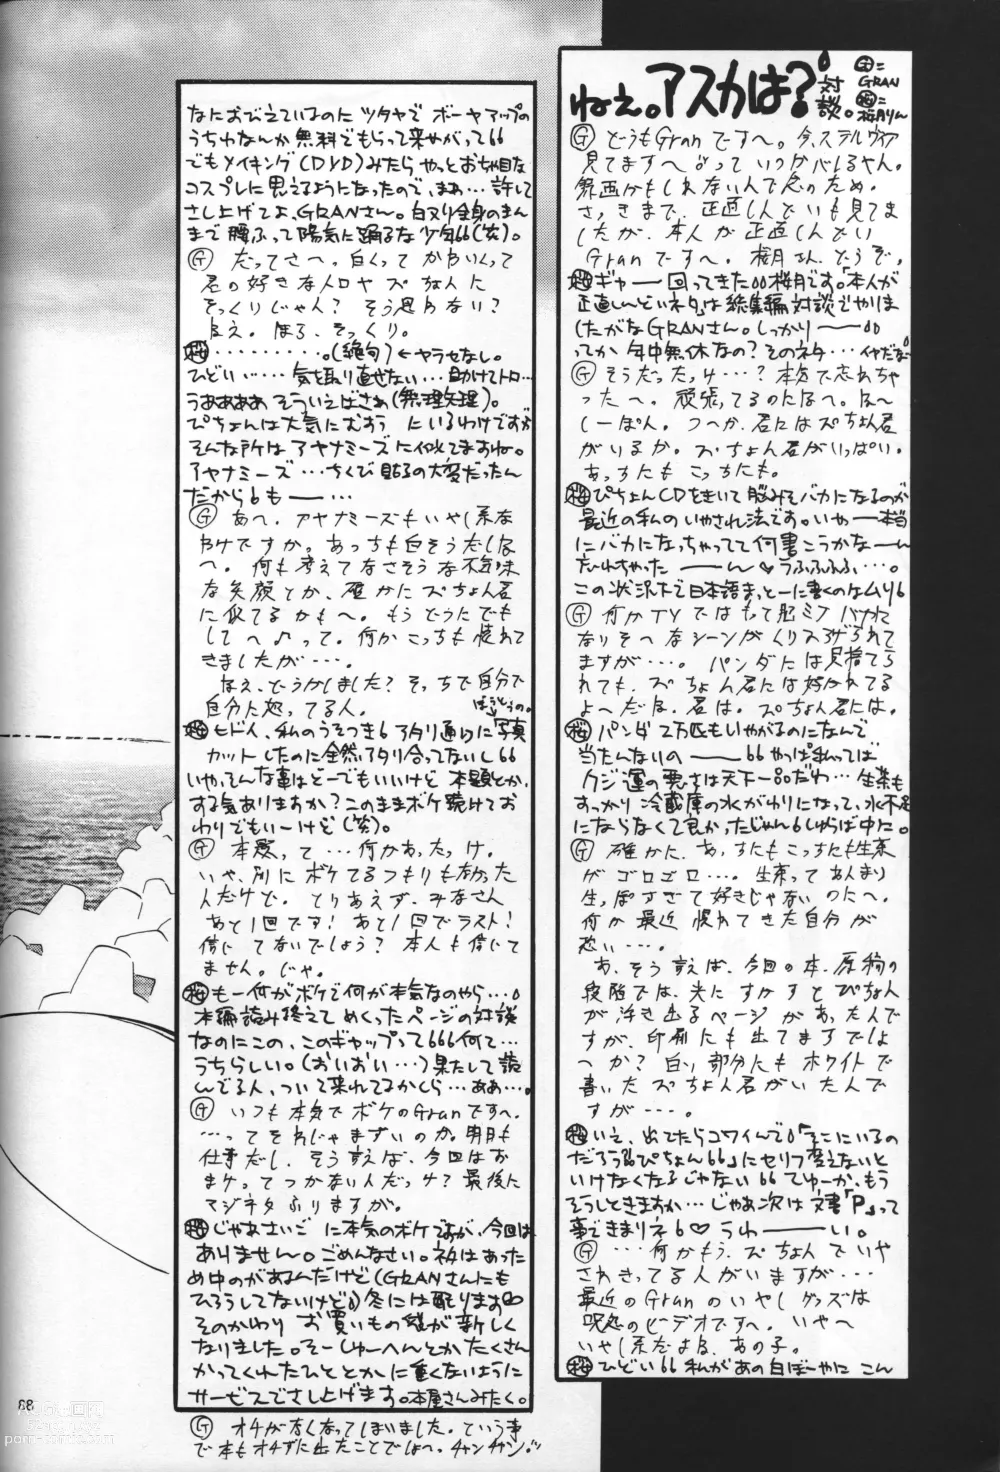 ねぇ。アスカは?対談。
㊉=GRAN
桜=桜月りん
Ⓖ どうもGranですへ。今、ステルヴィア
見てますへ
さっきまで、正直しんどいも見てま
したが、本人が正直しんどい
Granですへ。桜月さん、どうぞ。
桜 ギャー 回ってきた 桜月です。「本人が
正直しんどいネタ」は総集編対談でやりま
したがなGRANさん。しっかり
ってか年中無休なの?そのネタ…イヤだな
Ⓖ そうだったっけ…?本気で忘れちゃ
ったへ。頑張ってるのになへ。なへ
しーぽん。つへか、君にはズぴょん君
がいるか。ズぴょん君がいっぱい。
あっちにもこっちにも。
桜 ぴちょんCDをきいて脳みそバカになるのが
最近の私のいやされ法です。いやー本当
にバカになっちゃってて何書こうかなーん
忘れちゃったーん♡うふふふふ…。
この状況下で日本語まっとーに書くのはムリ
Ⓖ 何かTVではもって脳ミソバカに
なりそへなシーンがくり広げられて
ますが…。パンダには見捨てら
れても、ズぴょん君には好かれてる
よへだな、君は。ズぴょん君には。
桜 パンダ2万匹もいやがるのになんで
当たんないのー やっぱ私ってば
クジ運の悪さは天下一品だわ…生茶も
すっかり冷蔵庫の水がわりになって、水不足
にならなくて良かったじゃん しゅらば中に。
Ⓖ 確かに、あっちにもこっちにも生茶
がゴロゴロ…。生茶ってあんまり
生っぽすぎて好きじゃないのにへ。
何か最近慣れてきた自分が
恐い…。
あ、そう言えば、今回の本、原稿の
段階では、光にすかすとぴちょん
が浮き出るページがあったんで
すが、印刷にも出てますでしょ
へか?白い部分にもホワイトで
書いたズぴょん君がいたんで
すが…。
桜 いえ、出てたらコワイんで 「そこにいるの
だろうぴちょん」にセリフ変えないと
いけなくなるじゃない てゅーか、もう
そうしときますか…じゃあ次は文書「P」って
事できまりネ♡うわーーい。
Ⓖ …何かもう、ズぴょんでいや
されきってる人がいますが…
最近のGranのいやしグッズは
呪怨のビデオですへ。いやへ
いやし系だよね、あの子。
桜 ひどい 私があの白ぼーやに こん
なにおびえているのにツタヤでボーヤアップの
うちわなんか無料でもらって来やがって
でもメイキング(DVD)みたらやっとおちゃ目な
コスプレに思えるようになったので、まぁ…許して
さし上げてよ、GRANさん。白ヌリ全身のまん
まで腰ふって陽気に踊るな少年(笑)。
Ⓖ だってさへ。白くってかわいくって
君の好きな人ロヤズぴょんに
そっくりじゃん?そう思わない?
ねえ。ほら、そっくり。
桜 ………。(絶句)←ヤラせなし。
ひどい……気を取り直せない…助けてトロ…
うああああそういえばさぁ(無理矢理)。
ぴちょんは大気にむおうといるわけですが
そんな所はアヤナミーズに似てますね。
アヤナミーズ…ちくび貼るの大変だったん
だから もー…
Ⓖ あへ、アヤナミーズもいやし系な
わけですか。あっちも白そうだしな
へ。何も考えてなさそうな不気味
な笑顔とか、確かにズぴょん君
に似てるかもへ。もうどうにでも
してへ♪って。何かこっちも慣れて
きましたが…。
なえ、どうかしました?そっちで自分で
自分に怒ってる人。
桜 ヒドイ、私のうそつき アタリ通りに写真
カットしたのに全然アタリ合ってないし
いや、そんな事はどーでもいいけど、本題とか、
する気ありますか?このままボケ続けてお
わりでもいーけど(笑)。
Ⓖ 本題って…何かあったっけ。
いや、別にボケてるつもりもなかった
んだけど。とりあえず、みなさん
あと1回です!あと1回でラスト!
信じてないでしょう?本人も信じて
ません。じゃ。
桜 もー何がボケで何が本気なのやら…
本編読み終えてめくったページの対談
なのにこの、このギャップって 何て…
うちらしい。(おいおい…)果たして読
んでる人、ついて来れてるかくら…ああ…。
Ⓖ いつも本気でボケのGranですへ。
…ってそれじゃまずいのか。明日も
仕事だし。そう言えば、今回はお
まけってつかないんだっけ?最後に
マジネタふりますが。
桜 じゃあさいごに本気のボケですが、今回は
ありません。ごめんなさい。ネタはあった
め中のがあるんだけど(GRANさんにも
ひろうしてないけど)冬には配ります♡
そのかわり お買いもの袋が新しく
なりました。そーしゅーへんとかたくさん
かってくれたひととかに重くないように
サービスでさし上げます。本屋さんみたく。
Ⓖ オチがなくなってしまいました。という事
で本もオチずに出たことでしょへ。チャンチャン♪
88